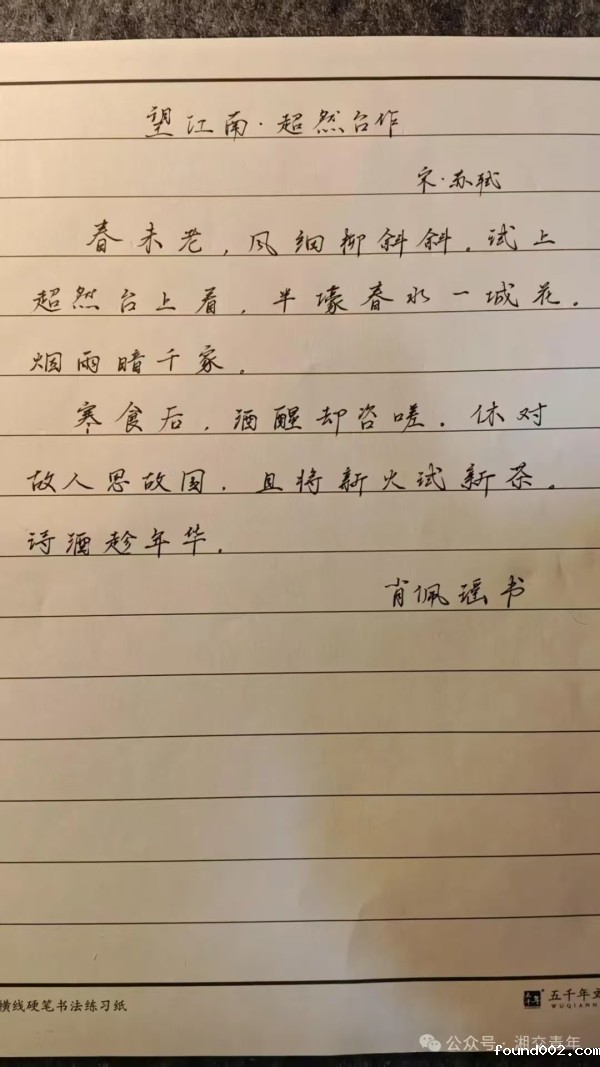 望江南·超然台作
宋·苏轼
春未老，风细柳斜斜。试上
超然台上看，半壕春水一城花。
烟雨暗千家。
寒食后，酒醒却咨嗟。休对
故人思故国，且将新火试新茶。
诗酒趁年华。
肖佩瑶书
横线硬笔书法练习纸
五千年文
WUQIANN
公众号·湘交青年
found002.com